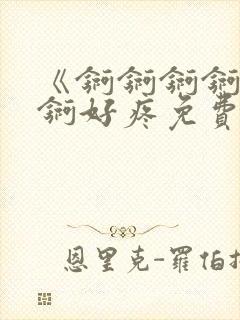 《锕锕锕锕
锕好疼免費
恩里克-羅伯托